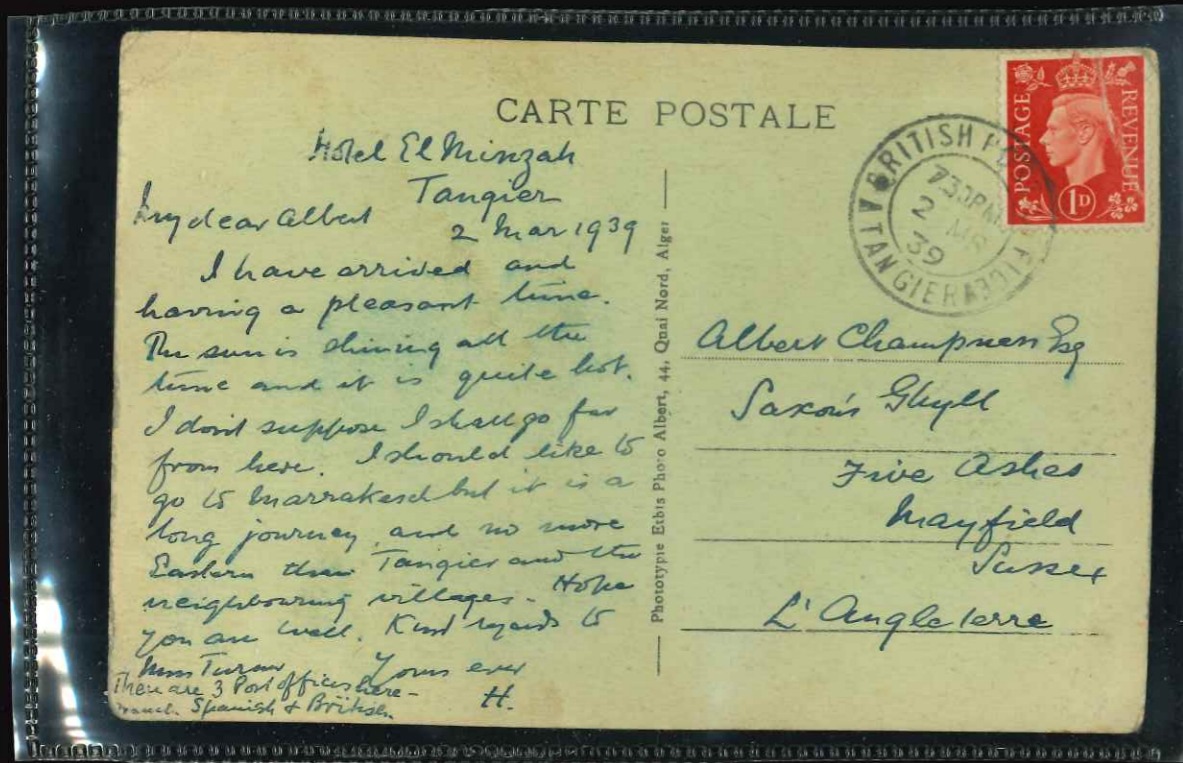 CARTE POSTALE
Hotel El Minzah
Tangier
2 Mar 1939
My dear Albert
I have arrived and
having a pleasant time.
The sun is shining all the
time and it is quite hot.
I don't suppose I shall go far
from here. I should like to
go to Marrakesch but it is a
long journey and no more
Eastern than Tangier and the
neighbouring villages. Hope
you are well. Kind regards to
Miss Turner Yours ever
H.
There are 3 Post offices here -
French Spanish & British.
Phototypie Etbis Photo Albert, 44, Quai Nord, Alger
POSTAGE REVENUE
1D
BRITISH POST OFFICE
TANGIER
730PM
2 MR
39
Albert Champness Esq
Saxon's Ghyll
Five Ashes
Mayfield
Sussex
L'Angleterre